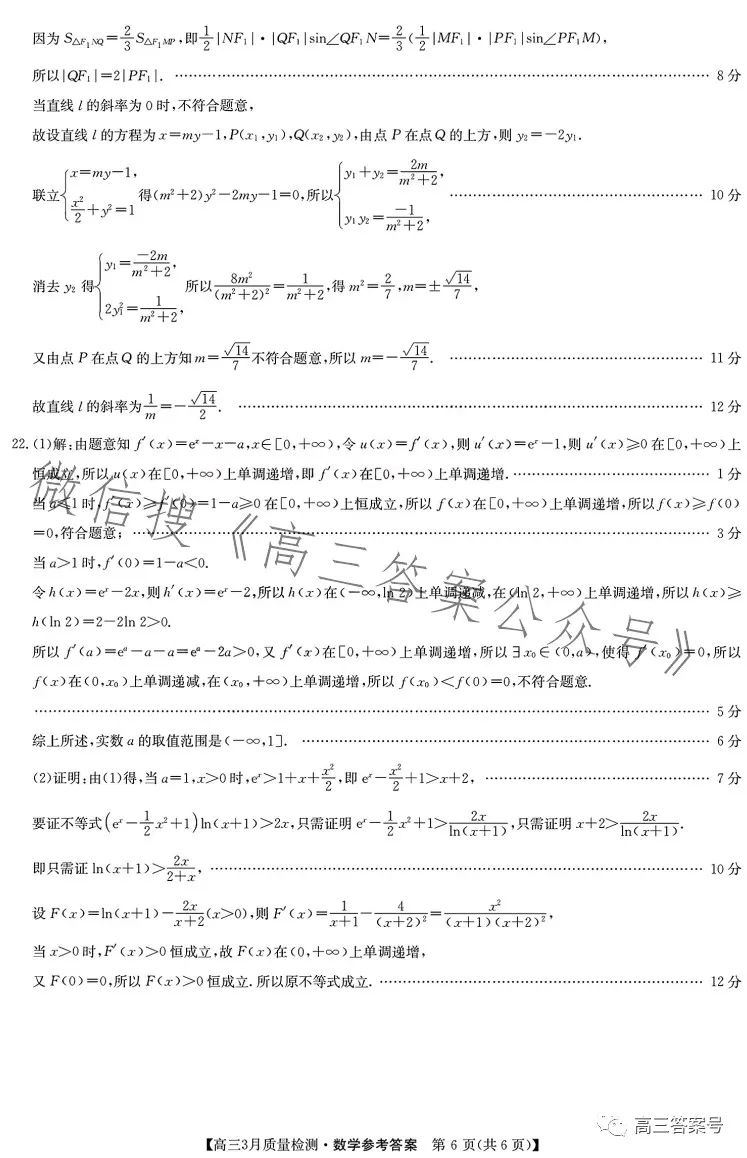 因为 S△F₁NQ=2/3 S△F₁MP,即1/2|NF₁|·|QF₁|sin∠QF₁N=2/3(1/2|MF₁|·|PF₁|sin∠PF₁M),
所以|QF₁|=2|PF₁|. …… 8分
当直线 l 的斜率为 0 时,不符合题意,
故设直线 l 的方程为 x=my−1,P(x₁,y₁),Q(x₂,y₂),由点 P 在点 Q 的上方,则 y₂=−2y₁.
联立{x=my−1, x²/2+y²=1 得(m²+2)y²−2my−1=0,所以{y₁+y₂=2m/(m²+2), y₁y₂=−1/(m²+2), …… 10分
消去 y₂ 得{y₁=−2m/(m²+2), 2y₁²=1/(m²+2), 所以 8m²/(m²+2)²=1/(m²+2),得 m²=2/7,m=±√14/7,
又由点 P 在点 Q 的上方知 m=√14/7 不符合题意,所以 m=−√14/7. …… 11分
故直线 l 的斜率为 1/m=−√14/2. …… 12分
22.(1)解:由题意知 f′(x)=eˣ−x−a,x∈[0,+∞),令 u(x)=f′(x),则 u′(x)=eˣ−1,则 u′(x)≥0 在[0,+∞)上
恒成立,所以 u(x)在[0,+∞)上单调递增,即 f′(x)在[0,+∞)上单调递增. …… 1分
当 a≤1 时,f′(x)≥f′(0)=1−a≥0 在[0,+∞)上恒成立,所以 f(x)在[0,+∞)上单调递增,所以 f(x)≥f(0)
=0,符合题意; …… 3分
当 a>1 时,f′(0)=1−a<0.
令 h(x)=eˣ−2x,则 h′(x)=eˣ−2,所以 h(x)在(−∞,ln 2)上单调递减,在(ln 2,+∞)上单调递增,所以 h(x)≥
h(ln 2)=2−2ln 2>0.
所以 f′(a)=eᵃ−a−a=eᵃ−2a>0,又 f′(x)在[0,+∞)上单调递增,所以∃x₀∈(0,a),使得 f′(x₀)=0,所以
f(x)在(0,x₀)上单调递减,在(x₀,+∞)上单调递增,所以 f(x₀)<f(0)=0,不符合题意.
…… 5分
综上所述,实数 a 的取值范围是(−∞,1]. …… 6分
(2)证明:由(1)得,当 a=1,x>0 时,eˣ>1+x+x²/2,即 eˣ−x²/2+1>x+2, …… 7分
要证不等式(eˣ−1/2x²+1)ln(x+1)>2x,只需证明 eˣ−1/2x²+1>2x/ln(x+1),只需证明 x+2>2x/ln(x+1).
即只需证 ln(x+1)>2x/(2+x), …… 10分
设 F(x)=ln(x+1)−2x/(x+2)(x>0),则 F′(x)=1/(x+1)−4/(x+2)²=x²/((x+1)(x+2)²),
当 x>0 时,F′(x)>0 恒成立,故 F(x)在(0,+∞)上单调递增,
又 F(0)=0,所以 F(x)>0 恒成立.所以原不等式成立. …… 12分
微信搜《高三答案公众号》
高三答案号
【高三3月质量检测·数学参考答案 第 6 页(共 6 页)】